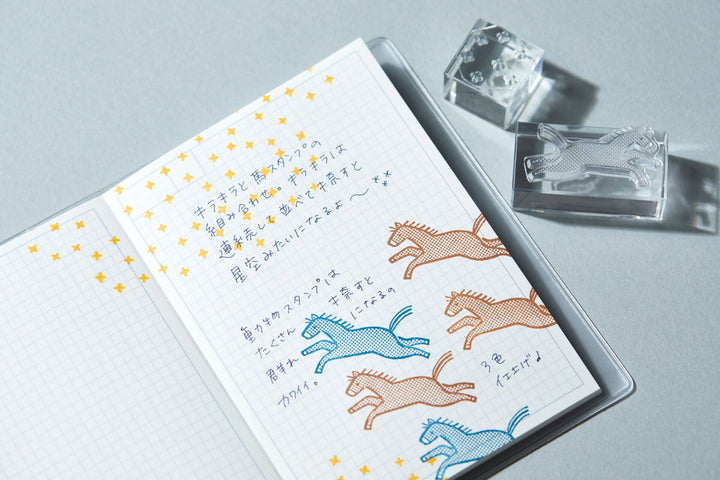 キラキラと馬スタンプの
組み合わせ。キラキラは
連続して並べて捺すと
星空みたいになるよ〜**
動物スタンプは
たくさん 捺すと
群れ になるの
カワイイ。
3色
仕上げ♪